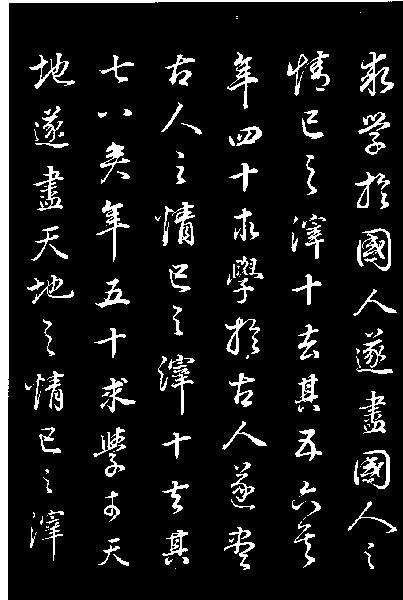 求學於國人遂盡國人之
情己之滓十去其五六矣
年四十求學於古人遂盡
古人之情己之滓十去其
七八矣年五十求學於天
地遂盡天地之情己之滓